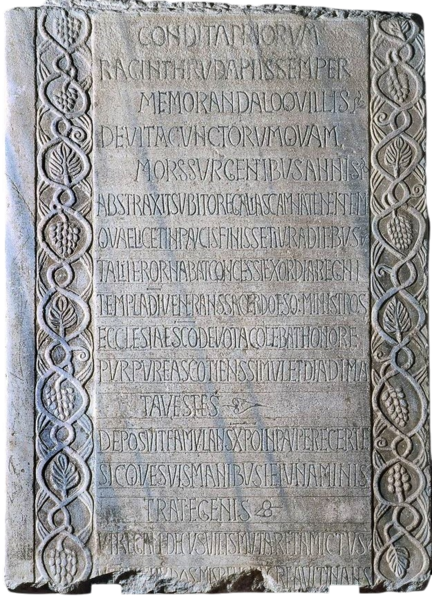 CONDITAPRIORUM
RAGINTHRUDAPIISSEMPER
MEMORANDALOQVILLIS
DEVITACUNCTORUMQVAM
MORSSURGENTIBUSANNIS
ABSTRAXITSUBITOREGALIASCAMNATENENTEM
QVAELICETINPAVCISFINISSETIVRADIEBUS
TALITERORNABATCONCESSIEXORDIAREGNI
TEMPLADIVENERANSSACERDOTESQ·MINISTROS
ECCLESIAESCODEVOTACOLEBATHONORE
PVRPVREAS
TAVESTES
DEPOSVITFAMVLANSXPOINPAVPERECERTE
SICQVESVISMANIBUSIEIUNAMINIS
TRATEGENIS